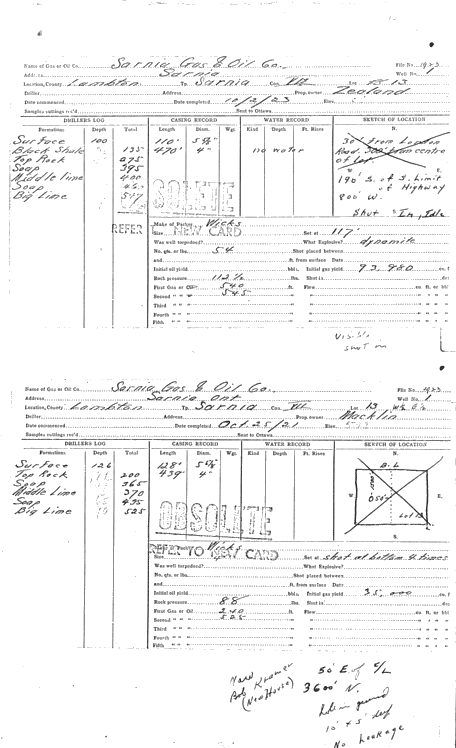 Name of Gas or Oil Co. Sarnia Gas & Oil Co. File No. 1923
Address Sarnia Well No. 1
Location, County Lambton Tp. Sarnia Con. VII Lot 13
Driller Address Prop. owner Zealand
Date commenced Date completed 10/2/23 Elev.
Samples cuttings rec'd Sent to Ottawa
DRILLERS LOG CASING RECORD WATER RECORD SKETCH OF LOCATION
Formation Depth Total Length Diam. Wgt. Kind Depth Ft. Rises N.
Surface 100 110' 5 5/8" 30' from London
Black Shale 135 470' 4" no water Road. 300' from centre
Top Rock 275 of lot.
Soap 395
Middle lime 400 190' S. of S. Limit
Soap of Highway
Big Lime 517 800' W.
OBSOLETE
Shut "In, Idle
REFER TO NEW CARD
Make of Packer Wicks
Size Set at 117'
Was well torpedoed? What Explosive? dynamite
No. qts. or lbs. 54 Shot placed between
and ft. from surface Date
Initial oil yield bbls. Initial gas yield 93,980 cu. f
Rock pressure 112 1/2 lbs. Shot is in
First Gas or Oil 540 ft. Flow cu. ft. or bbl
Second " " 545 " " " "
Third " " " " " " "
Fourth " " " " " " "
Fifth " " " " " " "
Visible
shut in
Name of Gas or Oil Co. Sarnia Gas & Oil Co. File No. 1923
Address Sarnia Ont Well No. 1
Location, County Lambton Tp. Sarnia Con. VII Lot 13 W 1/2 E 1/2
Driller Address Prop. owner Macklin
Date commenced Date completed Oct. 25/21 Elev.
Samples cuttings rec'd Sent to Ottawa
DRILLERS LOG CASING RECORD WATER RECORD SKETCH OF LOCATION
Formation Depth Total Length Diam. Wgt. Kind Depth Ft. Rises N.
Surface 126 128' 5 5/8" B-L
Top Rock 200 439' 4"
Soap 365
Middle Lime 370 W. E.
Soap 435
Big Lime 525 Lot 13
OBSOLETE
S.
REFER TO NEW CARD
Make of Packer Wicks
Size Set at shot at bottom 4 times
Was well torpedoed? What Explosive?
No. qts. or lbs. Shot placed between
and ft. from surface Date
Initial oil yield bbls. Initial gas yield 35,000 cu. f
Rock pressure 88 lbs. Shot is in
First Gas or Oil 240 ft. Flow cu. ft. or bbl
Second " " 525 " " " "
Third " " " " " " "
Fourth " " " " " " "
Fifth " " " " " " "
Bob Kramer
(New House)
50' E of C/L
3600' N.
hole in ground
10' x 5' deep
No Leakage